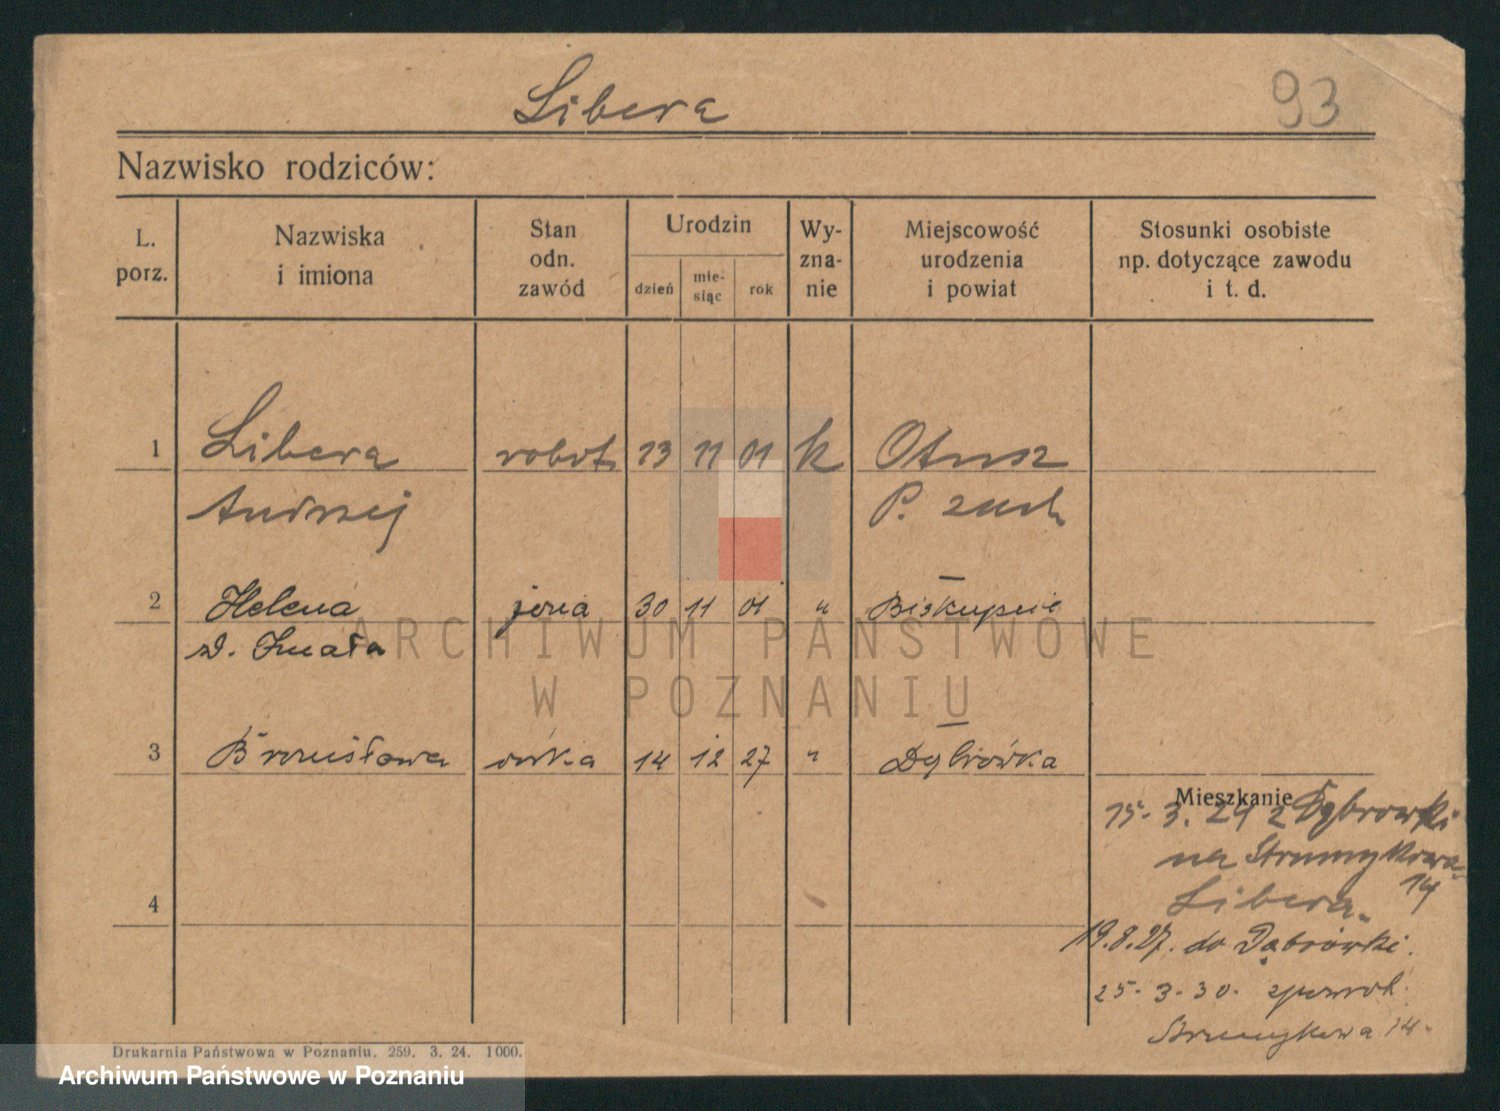 Libera
93
Nazwisko rodziców:
L. porz.
Nazwiska i imiona
Stan odn. zawód
Urodzin
dzień
mie-siąc
rok
Wy-zna-nie
Miejscowość urodzenia i powiat
Stosunki osobiste np. dotyczące zawodu i t. d.
1 Libera robot. 13 11 01 k Otusz
Andrzej P. zach
2 Helena żona 30 11 01 " Biskupcie
z d.
3 Bronisława córka 14 12 27 " Dąbrówka
Mieszkanie
15. 3. 24 z Dąbrowki
na Strumykowa
14
Libera
4
19.8.27. do Dąbrówki.
25. 3. 30. zpowrot.
Strumykowa 14.
Drukarnia Państwowa w Poznaniu. 259. 3. 24. 1000.
ARCHIWUM PAŃSTWOWE
W POZNANIU
Archiwum Państwowe w Poznaniu